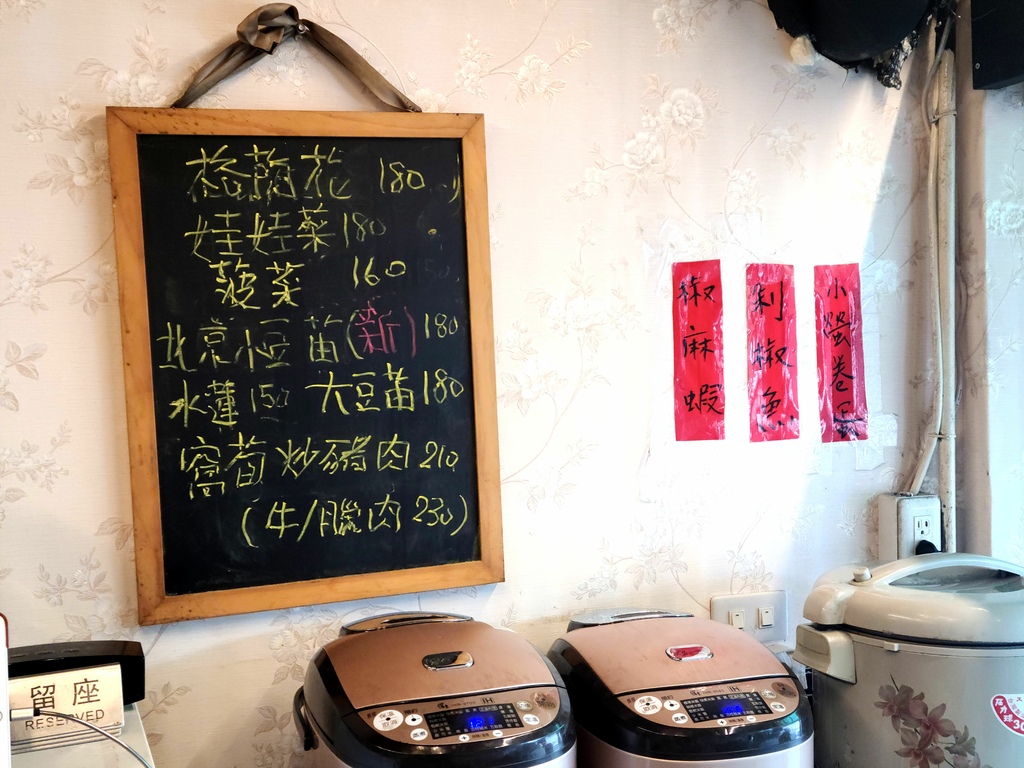 格蘭花 180
娃娃菜 180
菠菜 160
北京小豆苗(新) 180
水蓮 150 大豆苗 180
窩荀炒豬肉 210
(牛/臘肉 230)
椒麻蝦
剁椒魚
小螢卷
留座
RESERVED